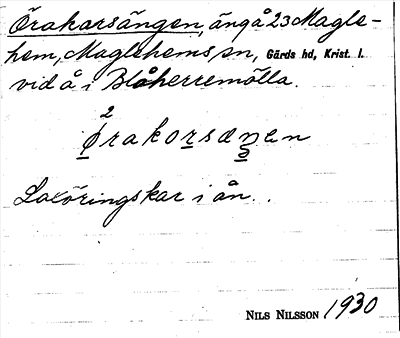 Örakarsängen, äng å 23 Magle-
hem, Maglehems sn, Gärds hd, Krist. l.
vid å i Blåherremölla.
2
ǿrakorsæŋen
Laxöringskar i ån.
NILS NILSSON 1930